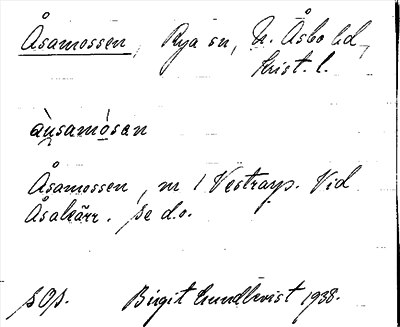 Åsamossen, Rya sn, N. Åsbo hd,
Krist. l.
àu̯samósan
Åsamossen, nr 1 Vestraryp. Vid
Åsakärr. Se d.o.
sOp. Birgit Lundkvist 1938.